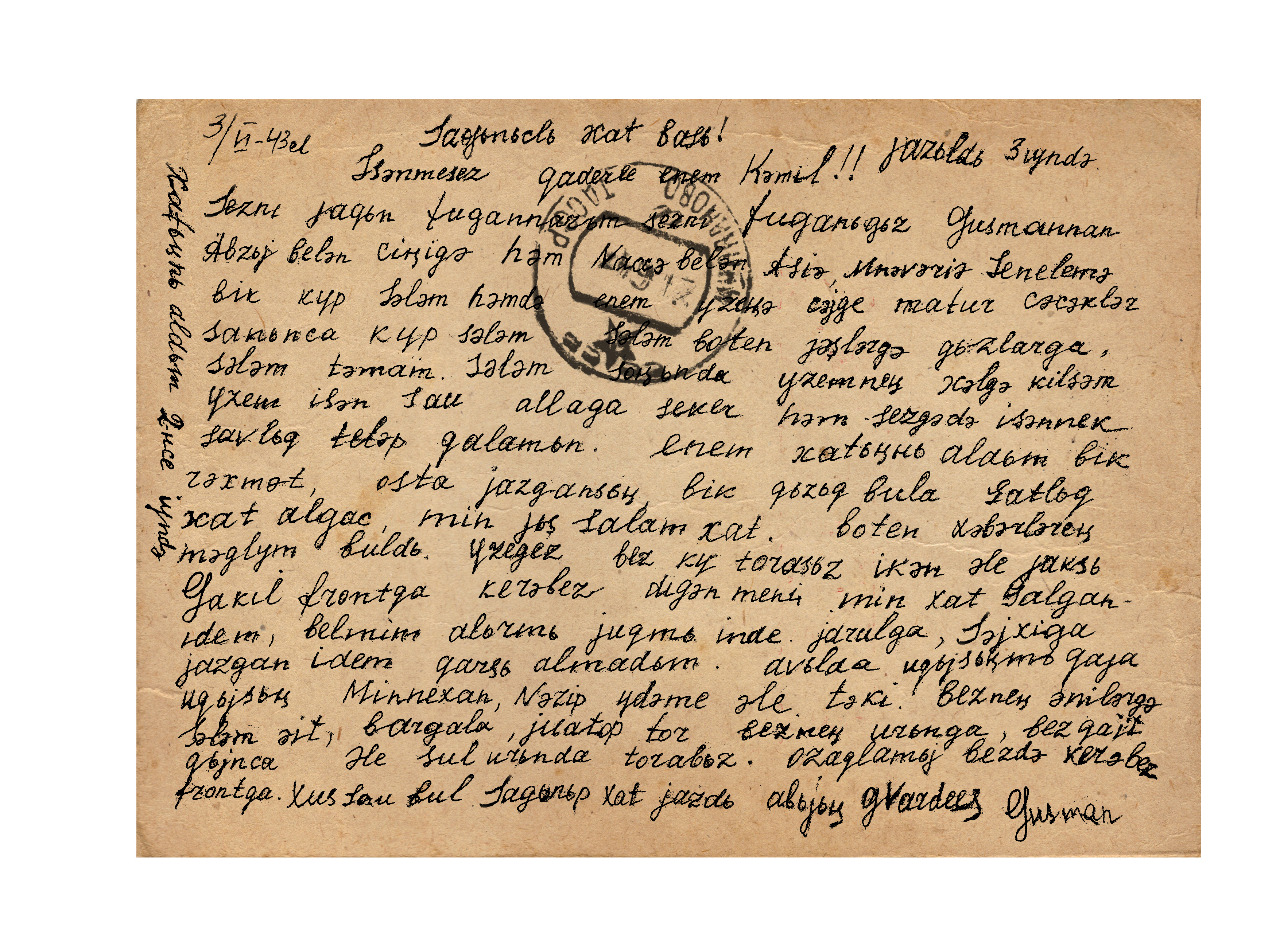 3/VI-43el
Sagьnьclь xat başь!
jazьldь 3 iyndə.
Isənmesez qaderle enem Kəmil!!
Sezne jaqьn tugannarьm sezne tuganьgьz Gusmannan
Abzьj belən ciŋigə həm Nacjə belən Asiə, Mnəvəriə Senelemə
bik kyp sələm həmdə enem yzeŋə cəjge matur cəcəklər
sanьnca kyp sələm sələm boten jəşlərgə qьzlarga,
sələm təmam. Sələm soŋьnda yzemneŋ xəlgə kilsəm
yzem isən sau allaga seker həm sezgədə isənnek
savlьq teləp qalamьn. enem xatьŋnь aldьm bik
rəxmət, osta jazgansьŋ, bik qьzьq bula satlьq
xat algac, min jьş salam xat. boten xəbərlərеŋ
məglym buldь. Yzegez bez ky torasьz ikən əle jaksь
Gakil frontga kerəbez digən meni min xat salgan-
idem, belmim alьrmь juqmь inde. jarulga, Səjxiga
jazgan idem qarsь almadьm. avьlda uqьjsьŋmь qaja
uqьjsьŋ Minnexan, Nəzip ydəme əle təki. Bezneŋ ənilərgə
sələm əit, bargala, juatьp tor bezneŋ urьnga, bez qajt
qьjnca əle sul urьnda torabьz. ozaqlamьj bezdə kerəbez
frontga. xus sau bul Sagьnьp xat jazdь abьjьŋ gvardeeŋ Gusman
Xatьŋnь aldьm 2nce iyndə